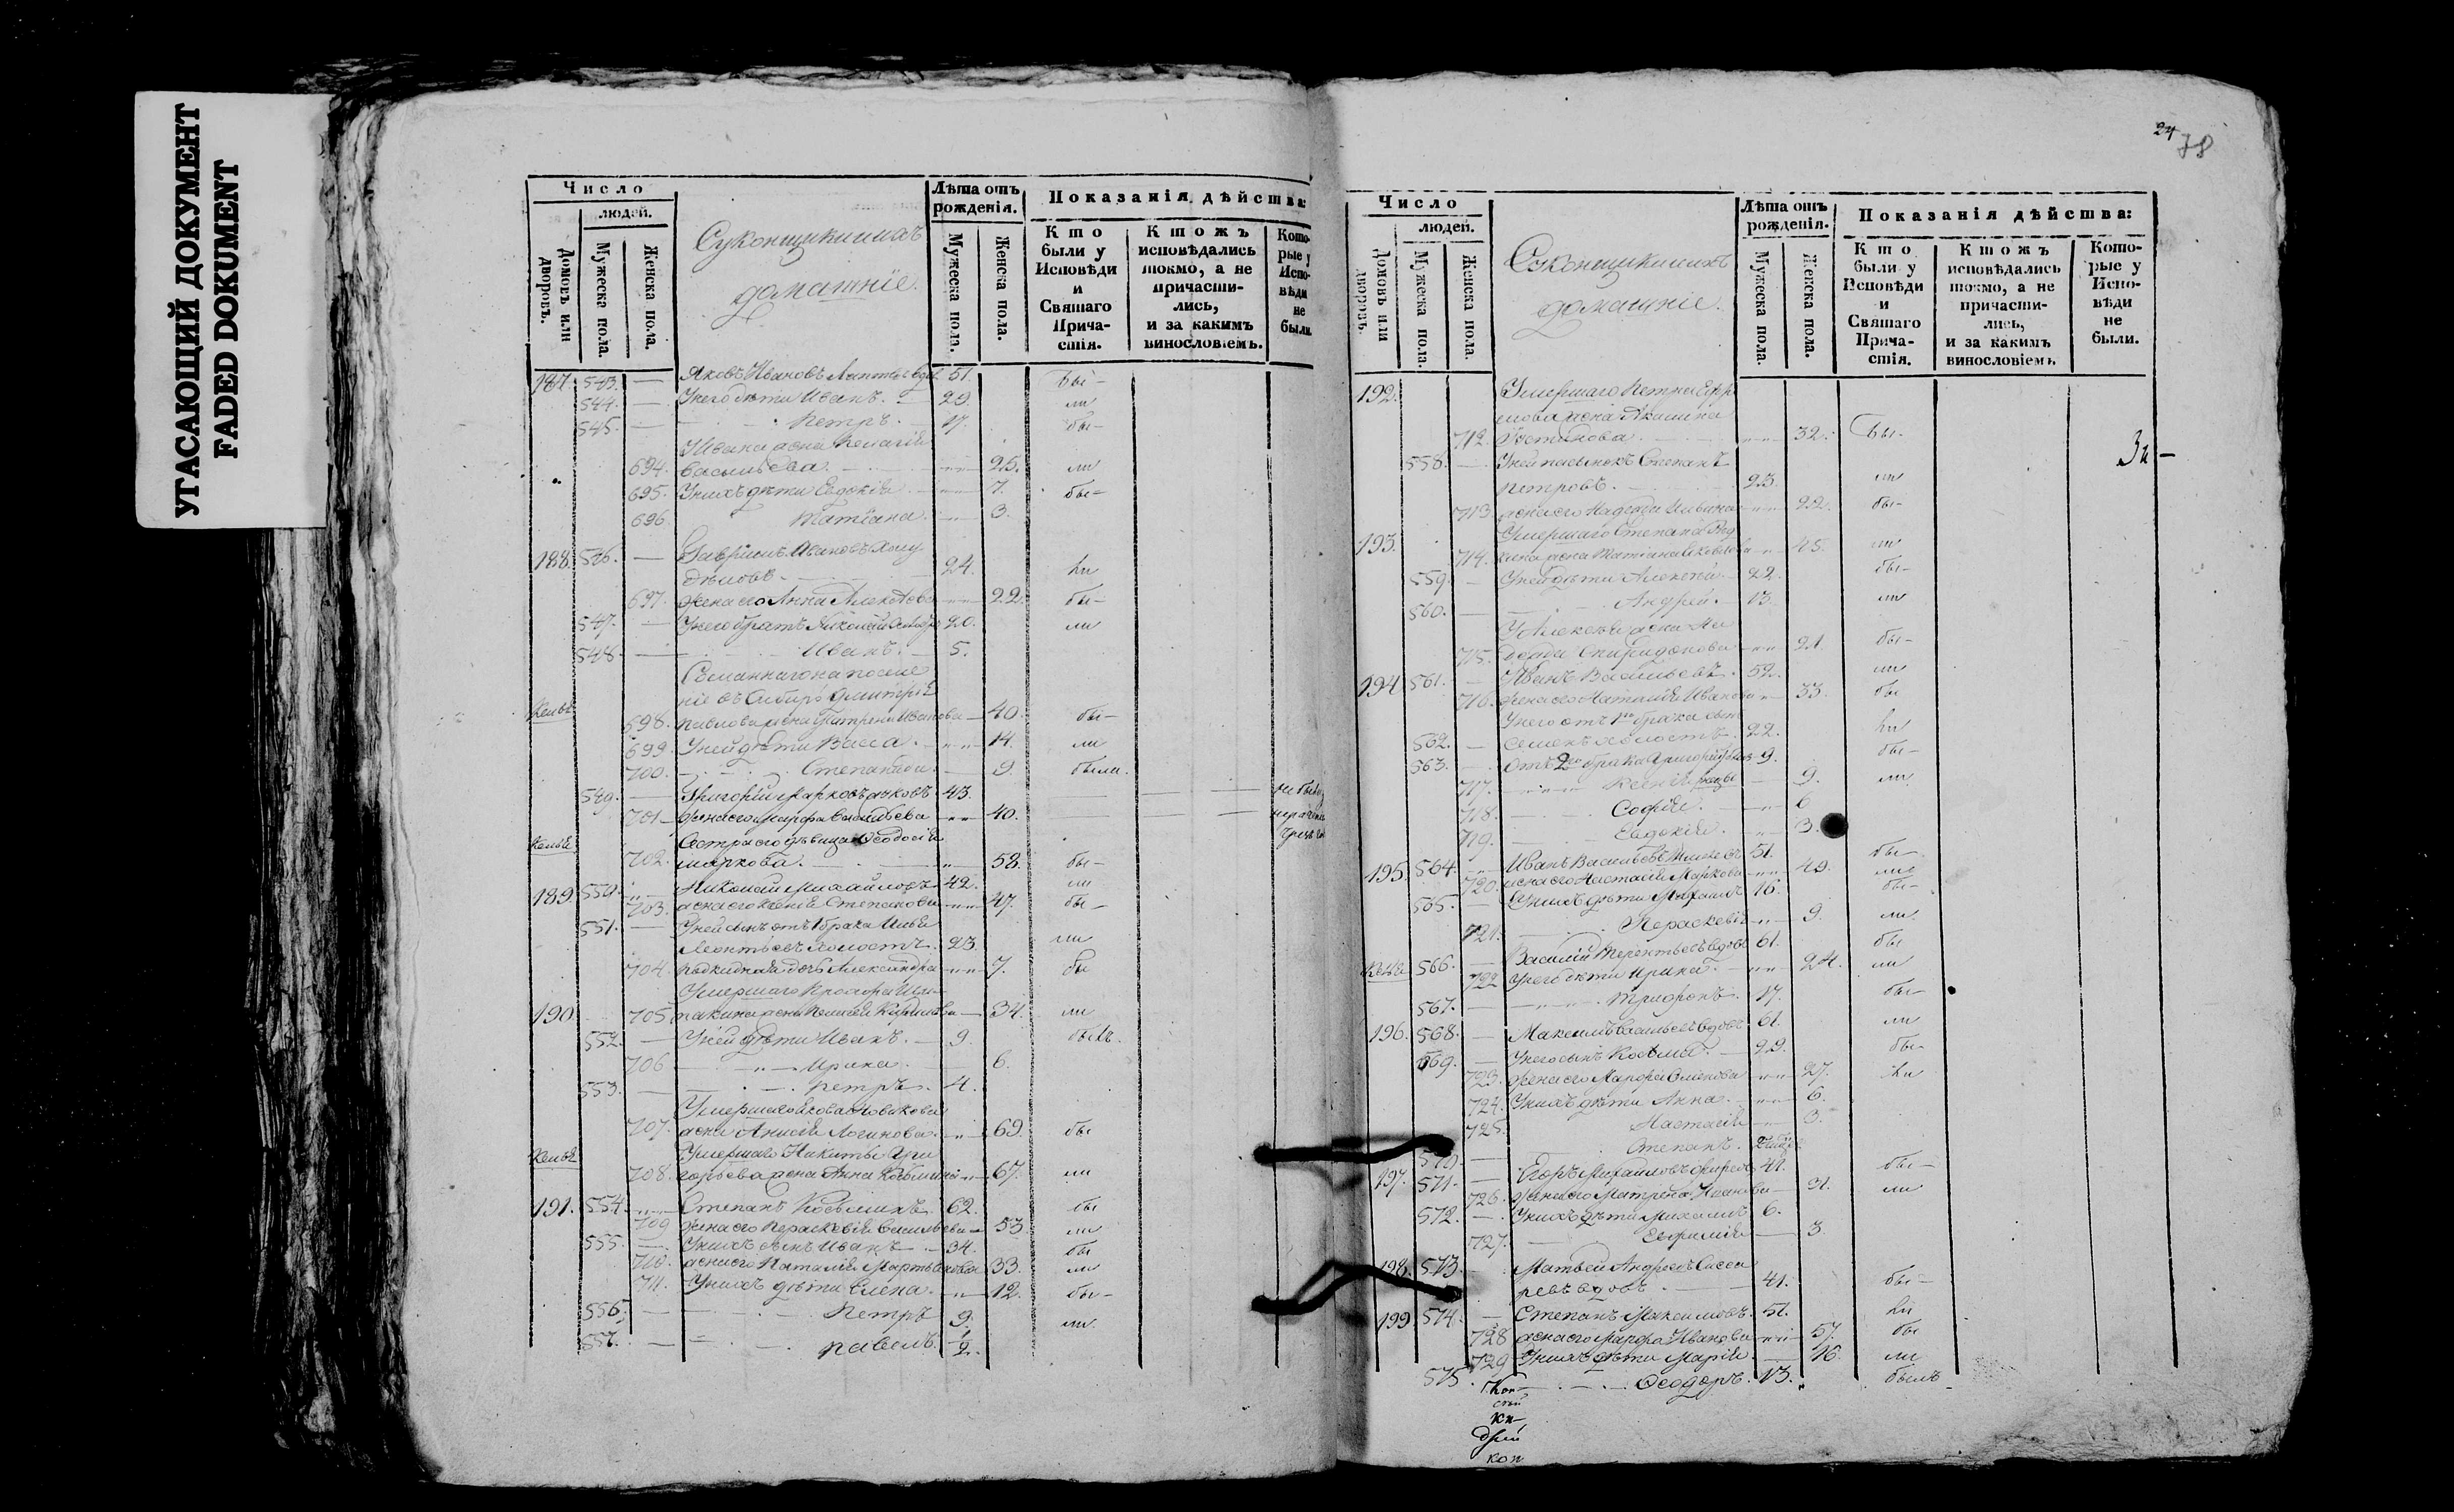 УГАСАЮЩИЙ ДОКУМЕНТ
FADED DOKUMENT
Число
людей.
Домовъ или дворовъ.
Мужеска пола.
Женска пола.
Суконщики и ихъ
домашніе.
Лѣта отъ рожденія.
Мужеска пола.
Женска пола.
Показанія дѣйства:
Кто были у Исповѣди и Святаго Причастія.
Ктожъ исповѣдались токмо, а не причастились, и за какимъ винословіемъ.
Которые у Исповѣди не были.
187. 543. — Яковъ Ивановъ вдов. 51. бы-
544. — У него дѣти Иванъ. 29. ли
545. — Петръ. 17. бы-
Ивана жена Пелагія
694. Васильева. 25. ли
695. У нихъ дѣти Евдокія 7. бы-
696. Татіана. 3.
188. 546. — Гавріилъ Ивановъ
24. ли
697. жена его Анна 22. бы-
547. — У него братъ Николай 20. ли
548. — Иванъ. 5.
Сосланнаго на поселе
ніе въ Сибирь Дмитрія
Келья
698. Павлова жена Матрена Иванова 40. бы-
699. У ней дѣти Васса. 14. ли
700. Степанида. 9. были.
549. — Григорій Марковъ 43. не были
701. жена его Марфа Васильева 40.
Келья Сестра его дѣвица Ѳеодосія
702. Маркова. 58. бы-
189. 550. — Николай Михайловъ 42. ли
703. жена его Ксенія Степанова 47. бы-
551. — У ней сынъ отъ 1 брака Илья
Леонтьевъ холостъ. 23. ли
704. Подкидная дочь Александра 7. бы
Умершаго Прохора
190. 705. жена Пелагея Кирилова 34. ли
552. — У ней дѣти Иванъ. 9. былъ.
706 Ирина. 6.
553. — Петръ. 4.
Умершаго Якова Новикова
707. жена Анисія Логинова. 69. бы
Келья Умершаго Никиты Гри
708. горьева жена Анна Козьмина 67. ли
191. 554. Степанъ Козьминъ. 62. бы
709 жена его Параскевія Васильева 53 ли
555. — У нихъ сынъ Иванъ 34. бы
710. жена его Наталія 33. ли
711. У нихъ дѣти Елена. 12. бы-
556. — Петръ 9. ли.
557. — Павелъ. 1/2.
24
78
Число
людей.
Домовъ или дворовъ.
Мужеска пола.
Женска пола.
Суконщики и ихъ
домашніе.
Лѣта отъ рожденія.
Мужеска пола.
Женска пола.
Показанія дѣйства:
Кто были у Исповѣди и Святаго Причастія.
Ктожъ исповѣдались токмо, а не причастились, и за какимъ винословіемъ.
Которые у Исповѣди не были.
192. Умершаго Петра Ефре
мова жена Акилина
712. Устинова. 32. Бы-
558. — У ней пасынокъ Степанъ
Петровъ. 23. ли
713 жена его Надежда Ильина 22. бы-
193. Умершаго Степана
714. жена Татіана 45. ли
559. — У ней дѣти Алексѣй. 22. бы-
560. — Андрей. 13. ли
У Алексѣя жена
715. Спиридонова 21. бы-
194 561. — Иванъ Васильевъ. 52. ли
716. жена его Наталія Иванова 33. бы
У него отъ 1го брака сынъ
562. — Семенъ холостъ. 22. ли
563. — Отъ 2го брака Григорій 9. бы-
717. Ксенія 9. ли
718. Софія. 6
719. Евдокія. 3.
195. 564. Иванъ Васильевъ 51. бы-
720. жена его Настасія Маркова 49. ли
565. — У нихъ дѣти Михаилъ 16. бы-
721. Параскевія 9. ли
Келья 566. — Василій Терентьевъ вдовъ 61. бы
722 У него дѣти Ирина. 24. ли
567. — Трифонъ. 17. бы-
196. 568. — Максимъ Васильевъ вдовъ 61. ли
569. — У него сынъ Козьма. 29. бы-
723. жена его Марфа 27. ли
724. У нихъ дѣти Анна. 6.
725. Настасія 3.
570. — Степанъ.
197. 571. — Егоръ Михайловъ 41. бы-
726. жена его Матрена Иванова 31. ли
572. — У нихъ дѣти Михаилъ 6.
727. Евфимія 3
198. 573. — Матвей Андреевъ
вдовъ 41. бы-
199 574. — Степанъ Максимовъ. 51. ли
728 жена его Марфа Иванова 57. бы
729 У нихъ дѣти Марія. 16. ли
575. Ѳеодоръ. 13. былъ